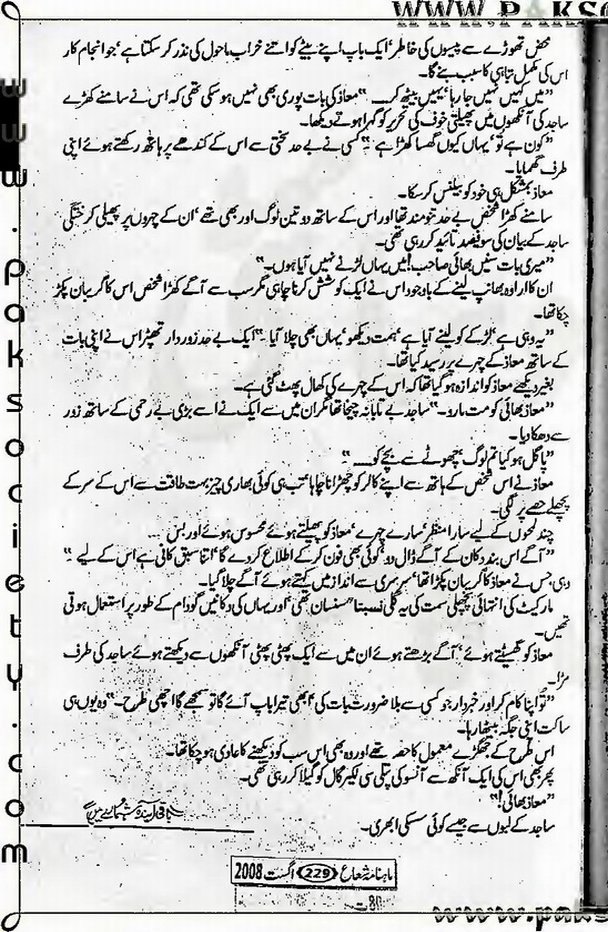 WWW.PAKSO
محض تھوڑے سے پیسوں کی خاطر، ایک باپ اپنے بیٹے کو اتنے خراب ماحول کی نذر کر سکتا ہے، جو انجام کار
اس کی مکمل تباہی کا سبب بنے گا۔
”میں کہیں نہیں جا رہا، یہیں بیٹھ کر ___“ معاذ کی بات پوری بھی نہیں ہو سکی تھی کہ اس نے سامنے کھڑے
ساجد کی آنکھوں میں پھیلتی خوف کی تحریر کو گہرا ہوتے دیکھا۔
”کون ہے تو، یہاں کیوں گھسا کھڑا ہے۔“ کسی نے بے حد سختی سے اس کے کندھے پر ہاتھ رکھتے ہوئے اپنی
طرف گھمایا۔
معاذ بمشکل ہی خود کو بیلنس کر سکا۔
سامنے کھڑا شخص بے حد تنومند تھا اور اس کے ساتھ دو تین لوگ اور بھی تھے، ان کے چہروں پر پھیلی کرختگی
ساجد کے بیان کی سو فیصد تائید کر رہی تھی۔
”میری بات سنیں بھائی صاحب! میں یہاں لڑنے نہیں آیا ہوں۔“
ان کا ارادہ بھانپ لینے کے باوجود اس نے ایک کوشش کرنا چاہی مگر سب سے آگے کھڑا شخص اس کا گریبان پکڑ
چکا تھا۔
”یہ وہی ہے، لڑکے کو لینے آیا ہے، ہمت دیکھو، یہاں بھی چلا آیا۔“ ایک بے حد زوردار تھپڑ اس نے اپنی بات
کے ساتھ معاذ کے چہرے پر رسید کیا تھا۔
بغیر دیکھے معاذ کو اندازہ ہو گیا تھا کہ اس کے چہرے کی کھال پھٹ گئی ہے۔
”معاذ بھائی کو مت مارو۔“ ساجد بے تابانہ چیخا تھا مگر ان میں سے ایک نے اسے بڑی بے رحمی کے ساتھ زور
سے دھکا دیا۔
”پاگل ہو گیا تم لوگ، چھوٹے سے بچے کو ___“
معاذ نے اس شخص کے ہاتھ سے اپنے کالر کو چھڑانا چاہا، تب ہی کوئی بھاری چیز بہت طاقت سے اس کے سر کے
پچھلے حصے پر لگی۔
چند لمحوں کے لیے سارا منظر، سارے چہرے، معاذ کو پھیلتے ہوئے محسوس ہوئے اور بس ...
”آگے اس بند دکان کے آگے ڈال دو، کوئی بھی فون کر کے اطلاع کر دے گا، اتنا سبق کافی ہے اس کے لیے۔“
وہی جس نے معاذ کا گریبان پکڑا تھا، سرسری سے انداز میں کہتے ہوئے آگے چلا گیا۔
مارکیٹ کی انتہائی پچھلی سمت کی یہ گلی نسبتاً سنسان تھی، اور یہاں کی دکانیں گودام کے طور پر استعمال ہوتی
تھیں۔
معاذ کو گھسیٹتے ہوئے، آگے بڑھتے ہوئے ان میں سے ایک پھٹی پھٹی آنکھوں سے دیکھتے ہوئے ساجد کی طرف
مڑا۔
”تو اپنا کام کر اور خبردار جو کسی سے بلا ضرورت بات کی، ابھی تیرا باپ آئے گا تو سمجھے گا اچھی طرح۔“ وہ یوں ہی
ساکت اپنی جگہ بیٹھا رہا۔
اس طرح کے جھگڑے معمول کا حصہ تھے اور وہ بھی اس سب کو دیکھنے کا عادی ہو چکا تھا۔
پھر بھی اس کی ایک آنکھ سے آنسو کی پتلی سی لکیر گال کو گیلا کر رہی تھی۔
”معاذ بھائی!“
ساجد کے لبوں سے جیسے کوئی سسکی ابھری۔
باقی آئندہ شمارے میں
ماہنامہ شعاع 229 اگست 2008
www.paksociety.com
www.paks